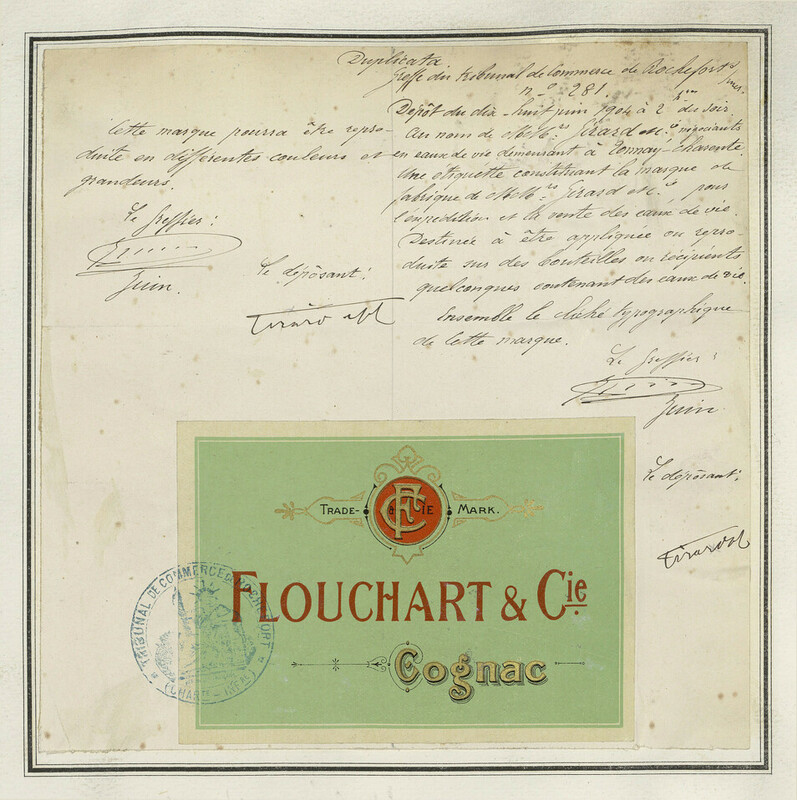 Duplicata
Greffe du tribunal de Commerce de Rochefort s/
mer.
n° 281.
Dépôt du dix-huit juin 1904 à 2 h du soir
Au nom de MM. Girard et Cie négociants
en eaux de vie demeurant à Tonnay-Charente.
Une étiquette constituant la marque de
fabrique de MM. Girard et Cie pour
l'expédition et la vente des eaux de vie.
Destinée à être appliquée ou repro-
duite sur des bouteilles ou récipients
quelconques contenant des eaux de vie.
Ensemble le cliché typographique
de cette marque.
Le Greffier:
Juin
Le déposant:
Girard et Cie
Cette marque pourra être repro-
duite en différentes couleurs et
grandeurs.
Le Greffier:
Juin.
Le déposant:
Girard et Cie
TRADE- & CIE MARK.
FLOUCHART & Cie
Cognac
TRIBUNAL DE COMMERCE DE ROCHEFORT
(CHARTE-INFRE)